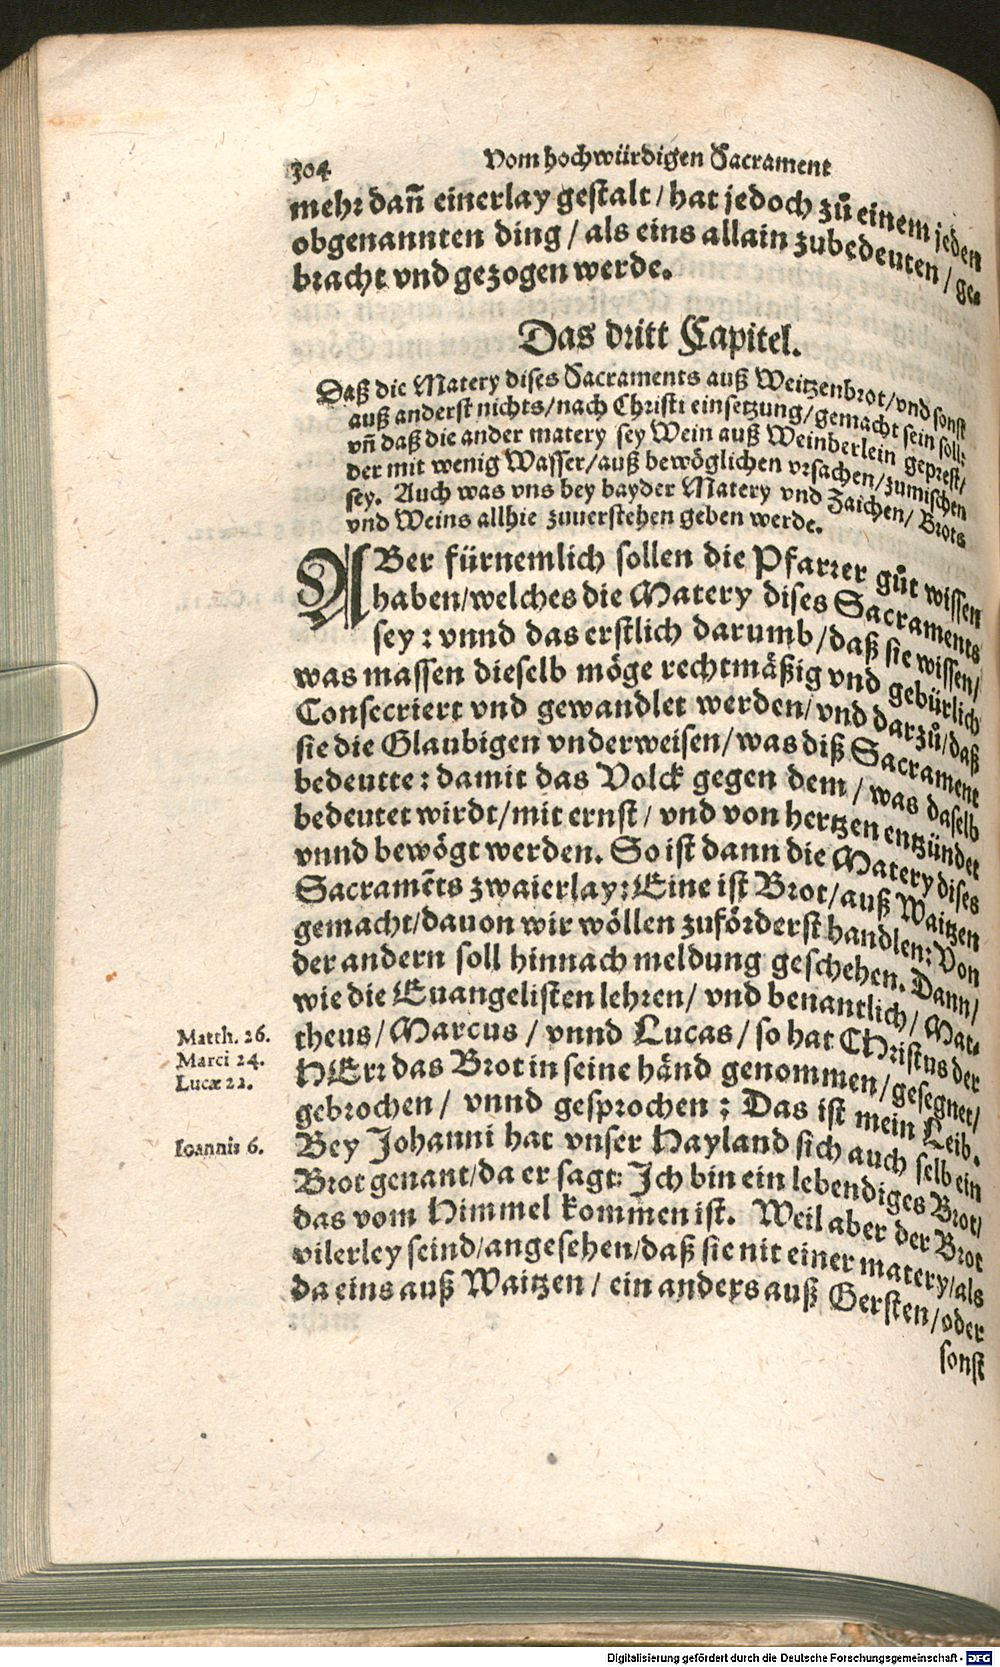 304 Vom hochwürdigen Sacrament
mehr dañ einerlay gestalt / hat jedoch zů einem jeden
obgenannten ding / als eins allain zubedeuten / ge⸗
bracht vnd gezogen werde.
Das dritt Capitel.
Daß die Matery dises Sacraments auß Weitzenbrot / vnd sonst
auß anderst nichts / nach Christi einsetzung / gemacht sein soll:
vñ daß die ander matery sey Wein auß Weinberlein geprest /
der mit wenig Wasser / auß bewöglichen vrsachen / zumischen
sey. Auch was vns bey bayder Matery vnd Zaichen / Brots
vnd Weins allhie zuuerstehen geben werde.
ABer fürnemlich sollen die Pfarrer gůt wissen
haben / welches die Matery dises Sacraments
sey: vnnd das erstlich darumb / daß sie wissen /
was massen dieselb möge rechtmäßig vnd gebürlich
Consecriert vnd gewandlet werden / vnd darzů / daß
sie die Glaubigen vnderweisen / was diß Sacrament
bedeutte: damit das Volck gegen dem / was daselb
bedeutet wirdt / mit ernst / vnd von hertzen entzündet
vnnd bewögt werden. So ist dann die Matery dises
Sacramẽts zwaierlay: Eine ist Brot / auß Waitzen
gemacht / dauon wir wöllen zuförderst handlen: Von
der andern soll hinnach meldung geschehen. Dann /
wie die Euangelisten lehren / vnd benantlich / Mat⸗
Matth. 26. theus / Marcus / vnnd Lucas / so hat CHristus der
Marci 24. HErr das Brot in seine händ genommen / gesegnet /
Lucæ 22. gebrochen / vnnd gesprochen: Das ist mein Leib.
Ioannis 6. Bey Johanni hat vnser Hayland sich auch selb ein
Brot genant / da er sagt: Ich bin ein lebendiges Brot /
das vom Himmel kommen ist. Weil aber der Brot
vilerley seind / angesehen / daß sie nit einer matery / als
da eins auß Waitzen / ein anders auß Gersten / oder
sonst
Digitalisierung gefördert durch die Deutsche Forschungsgemeinschaft - DFG